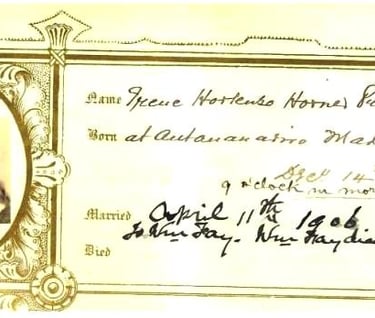 Name Irene Hortense Horner
Born at Antananarivo Mad
Dec 14
9 o'clock in mor
Married April 11th 1906
To Wm Fay. Wm Fay die
Died